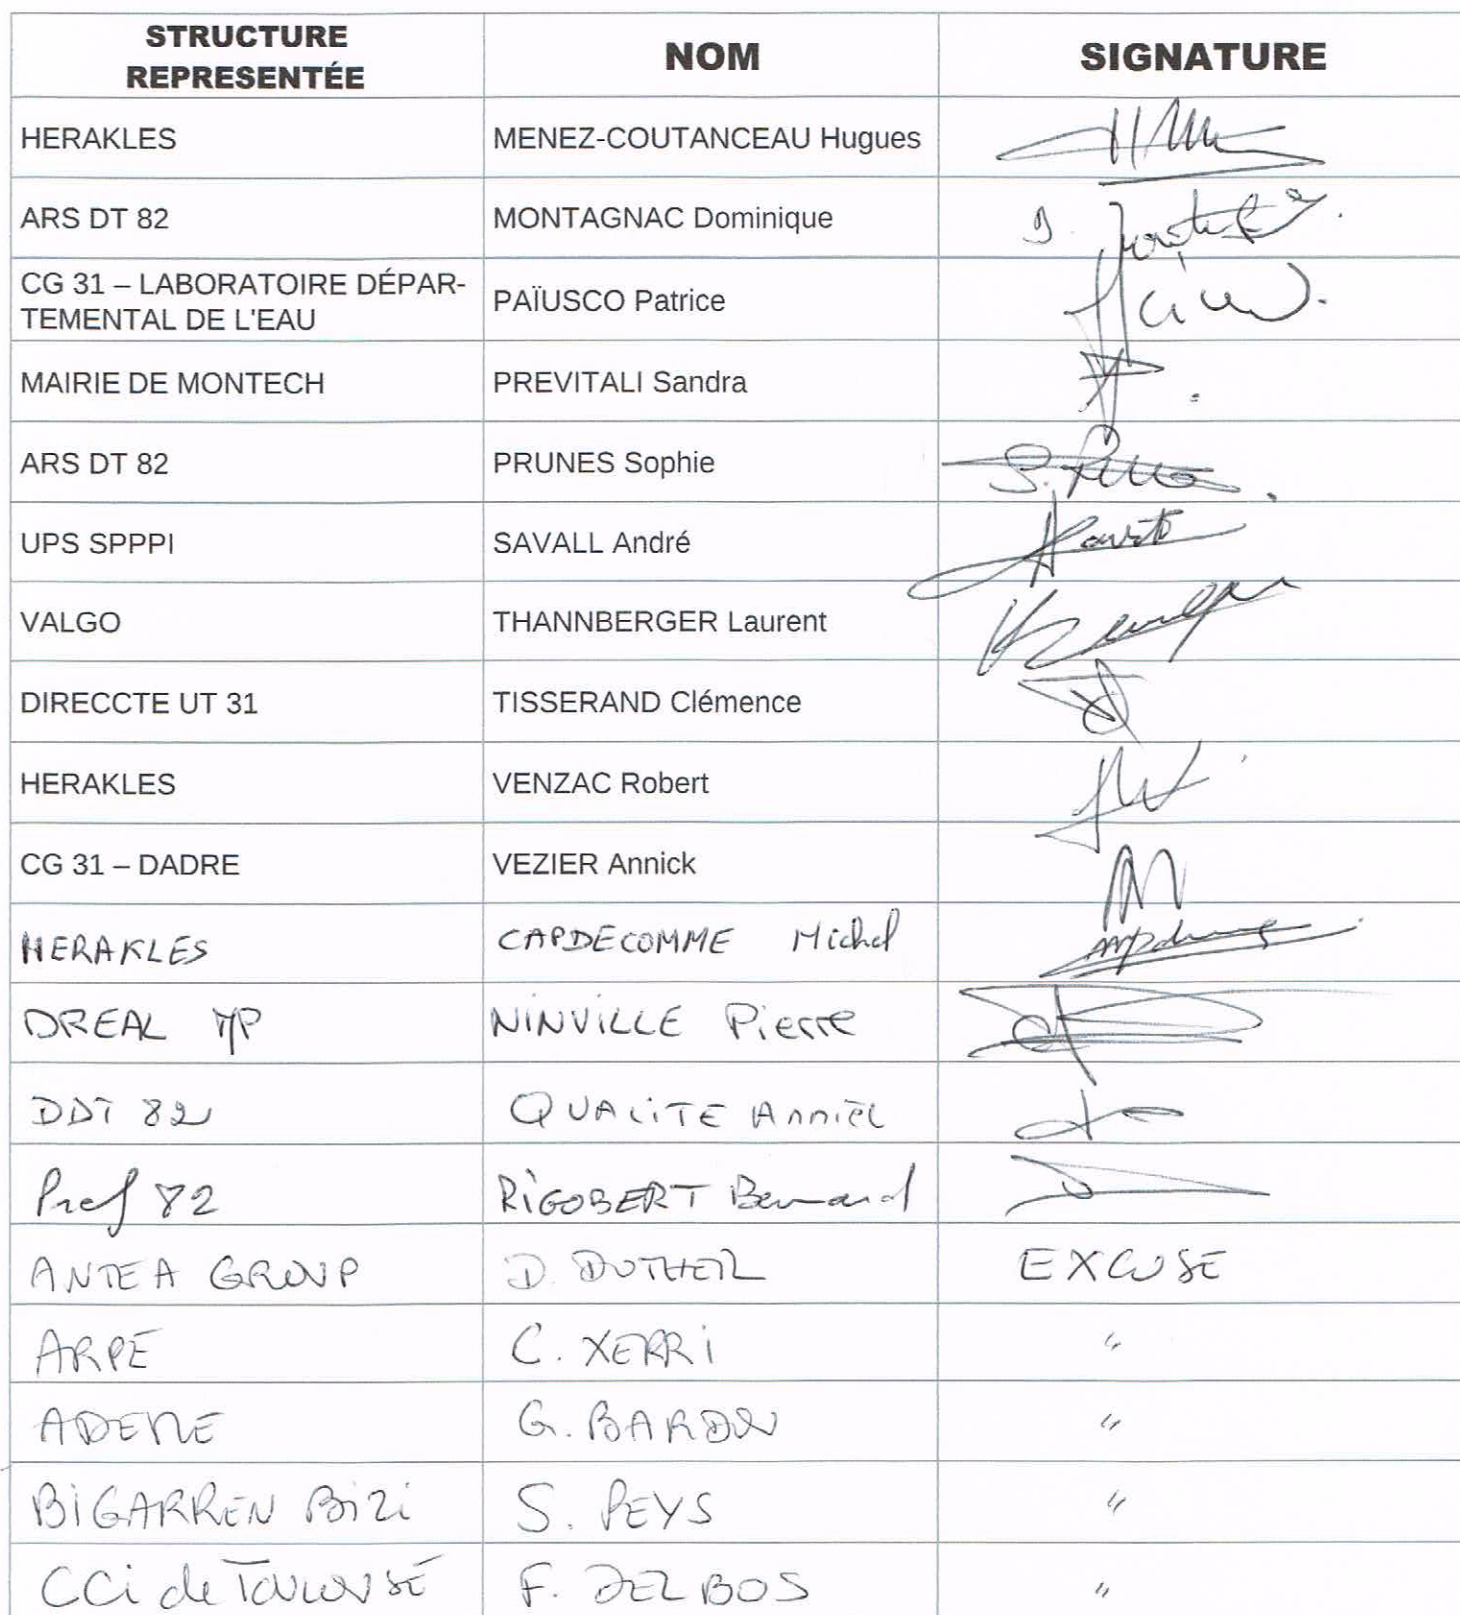 STRUCTURE
REPRESENTÉE
NOM
SIGNATURE
HERAKLES
MENEZ-COUTANCEAU Hugues
ARS DT 82
MONTAGNAC Dominique
CG 31 – LABORATOIRE DÉPAR-
TEMENTAL DE L'EAU
PAÏUSCO Patrice
MAIRIE DE MONTECH
PREVITALI Sandra
ARS DT 82
PRUNES Sophie
UPS SPPPI
SAVALL André
VALGO
THANNBERGER Laurent
DIRECCTE UT 31
TISSERAND Clémence
HERAKLES
VENZAC Robert
CG 31 – DADRE
VEZIER Annick
HERAKLES
CAPDECOMME Michel
DREAL MP
NINVILLE Pierre
DDT 82
QUALITE Anniel
Pref 82
RIGOBERT Bernard
ANTEA GROUP
D. DUTHEIL
EXCUSE
ARPE
C. XERRI
"
ADEME
G. BARDOU
"
BIGARREN BIZI
S. PEYS
"
CCi de TOULOUSE
F. DELBOS
"